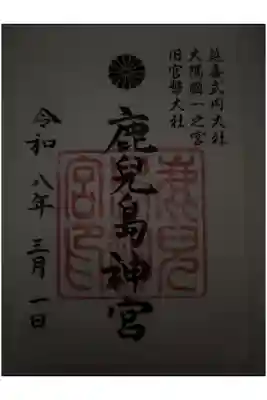 延喜式内大社
大隅國一之宮
旧官幣大社
鹿兒島神宮
令和八年三月一日